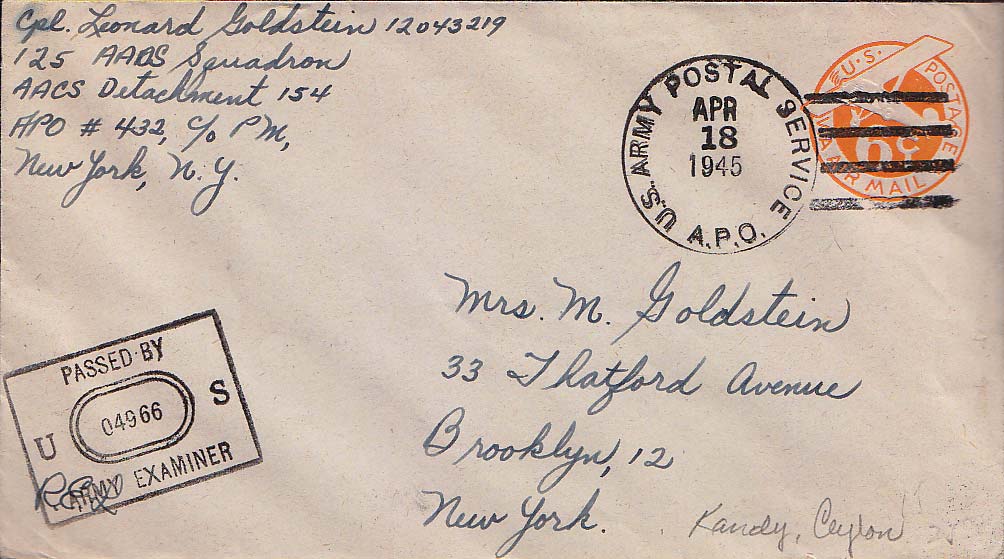 Cpl. Leonard Goldstein 12043219
125 AACS Squadron
AACS Detachment 154
APO # 432, c/o PM,
New York, N.Y.
U.S. ARMY POSTAL SERVICE
APR
18
1945
A.P.O.
U.S. POSTAGE
6c
VIA AIR MAIL
Mrs. M. Goldstein
33 Thatford Avenue
Brooklyn, 12
New York.
PASSED BY
U 04966 S
ARMY EXAMINER
Kandy, Ceylon